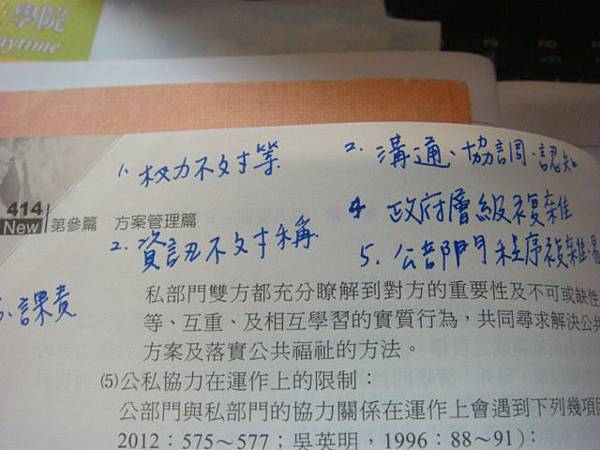 學院
anytime
1. 权力不对等
2. 溝通、協調、認知
414
New 第參篇 方案管理篇
4 政府層級複雜
2. 資訊不对稱
5. 公部門程序複雜、易
課責
私部門雙方都充分瞭解到對方的重要性及不可或缺性
等、互重、及相互學習的實質行為，共同尋求解決公共
方案及落實公共福祉的方法。
⑸公私協力在運作上的限制：
公部門與私部門的協力關係在運作上會遇到下列幾項
2012：575～577；吳英明，1996：88～91)：